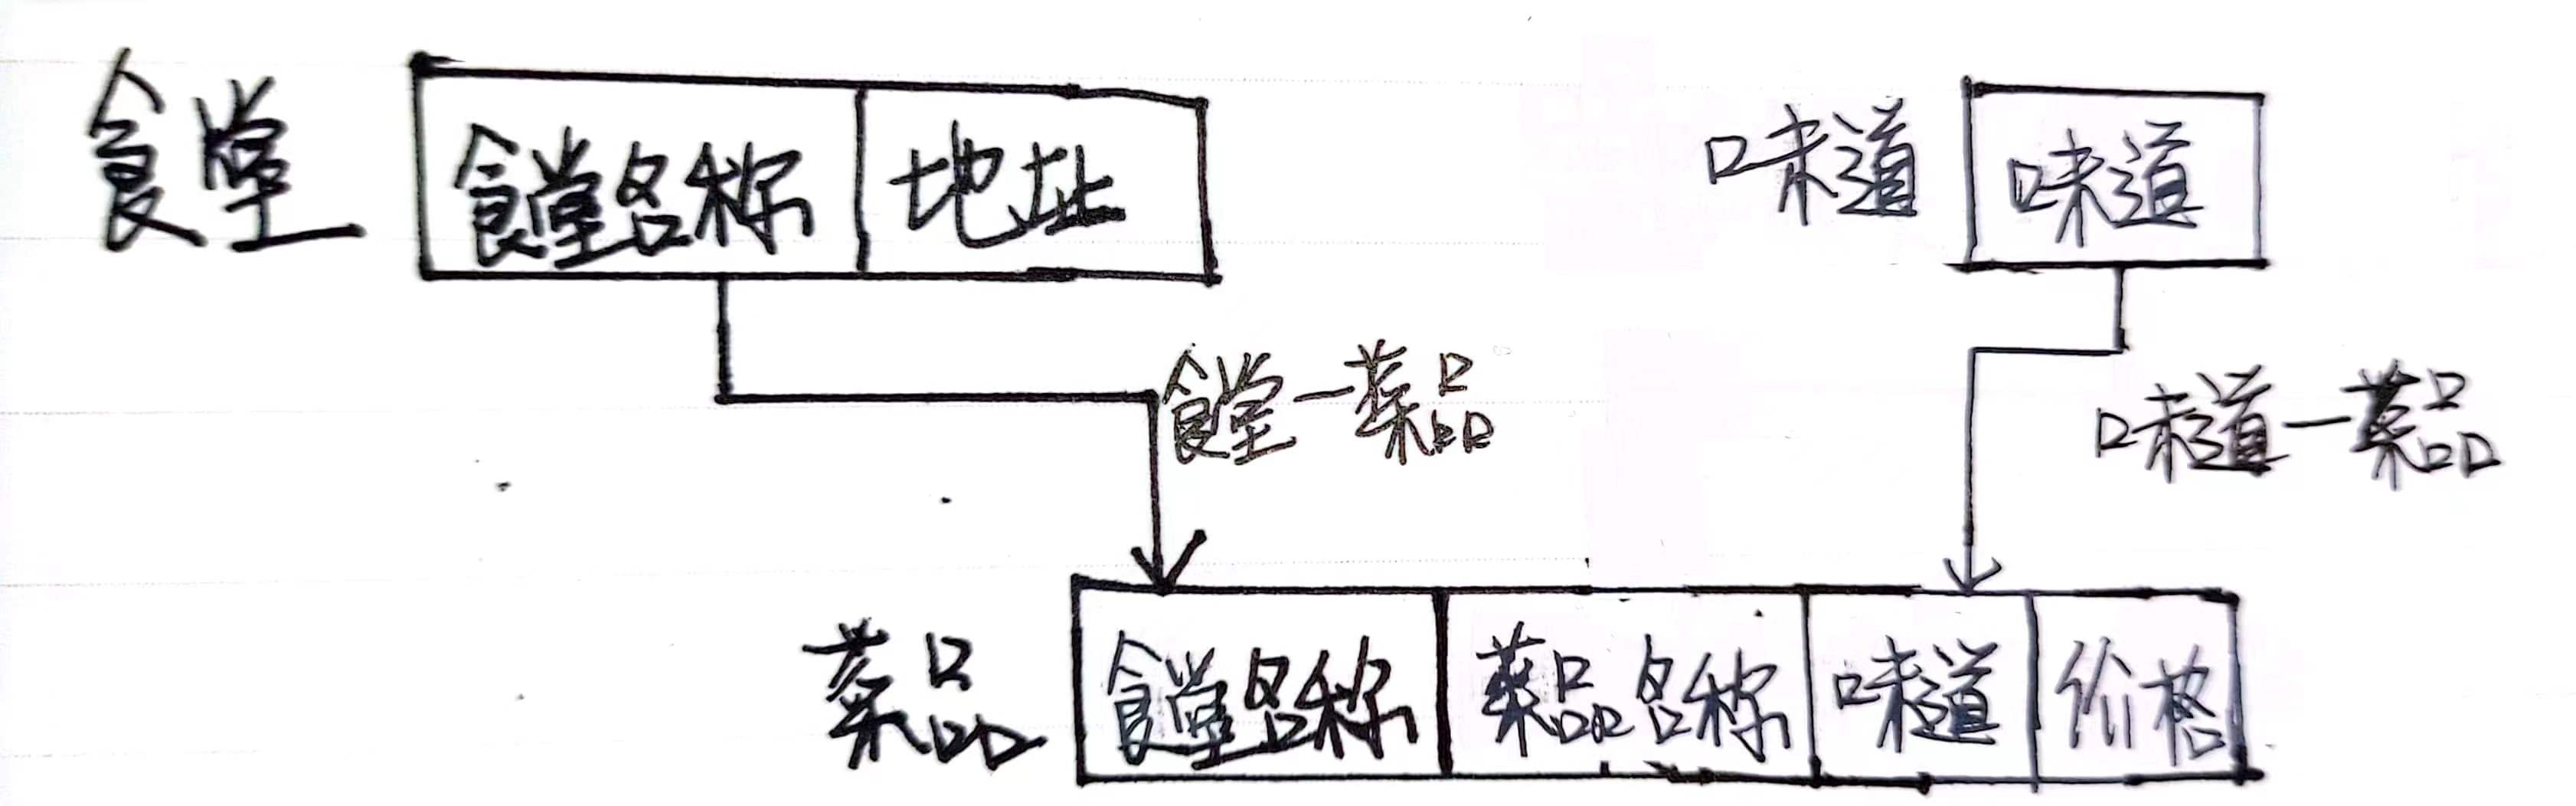 食堂 食堂名称 地址 味道 味道
食堂—菜品 味道—菜品
菜品 食堂名称 菜品名称 味道 价格